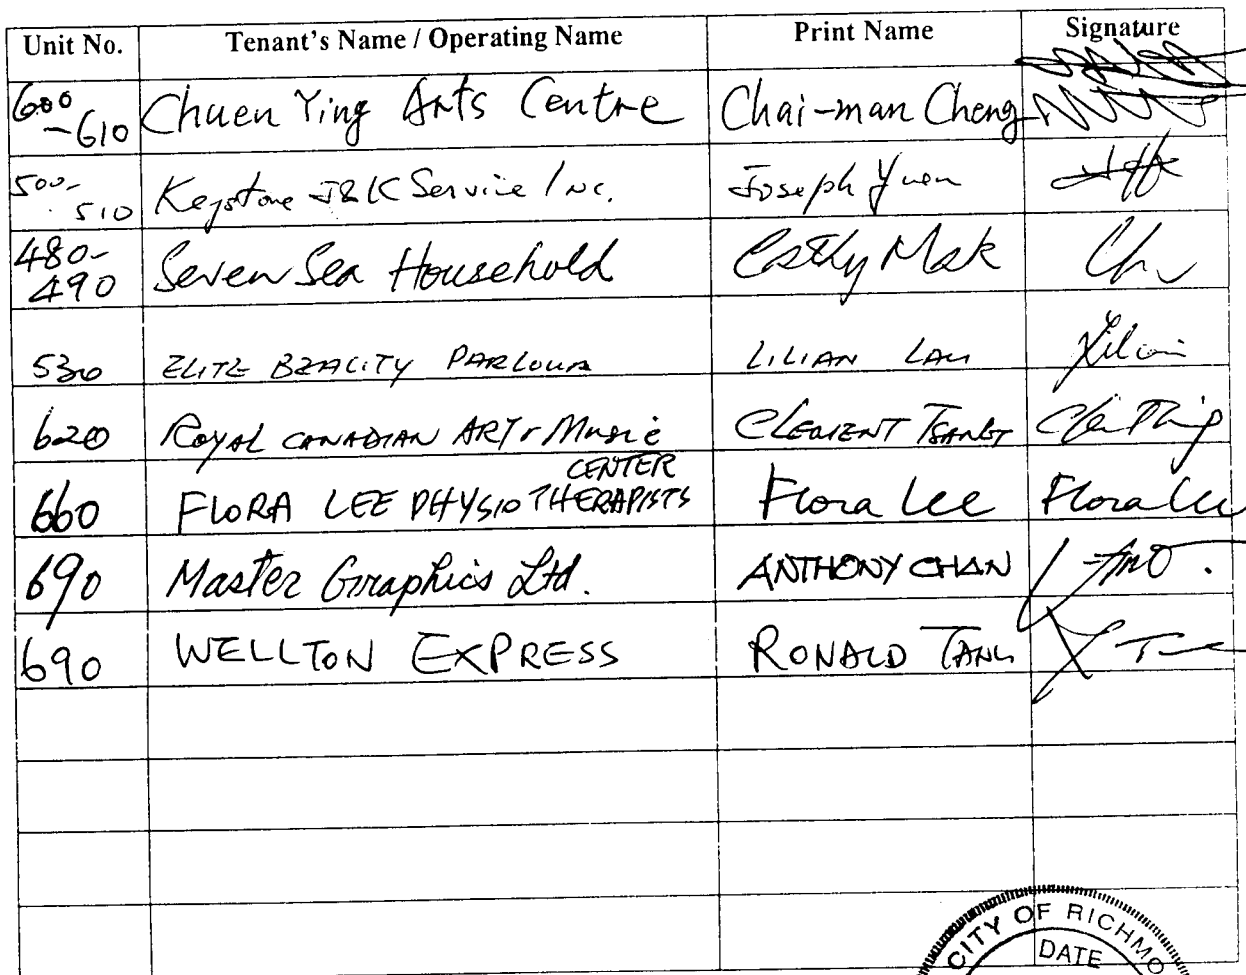 Unit No. Tenant's Name / Operating Name Print Name Signature
600
-610 Chuen Ying Arts Centre Chai-man Cheng
500-
510 Keystone J&K Service Inc. Joseph Yuen
480-
490 Seven Sea Household Cathy Mak
530 ELITE BEAUTY PARLOUR LILIAN LAU
620 ROYAL CANADIAN ART & Music CLEMENT TSANG
CENTER
660 FLORA LEE PHYSIOTHERAPISTS Flora Lee Flora Lee
690 Master Graphics Ltd. ANTHONY CHAN
690 WELLTON EXPRESS RONALD TANG
CITY OF RICHMO
DATE